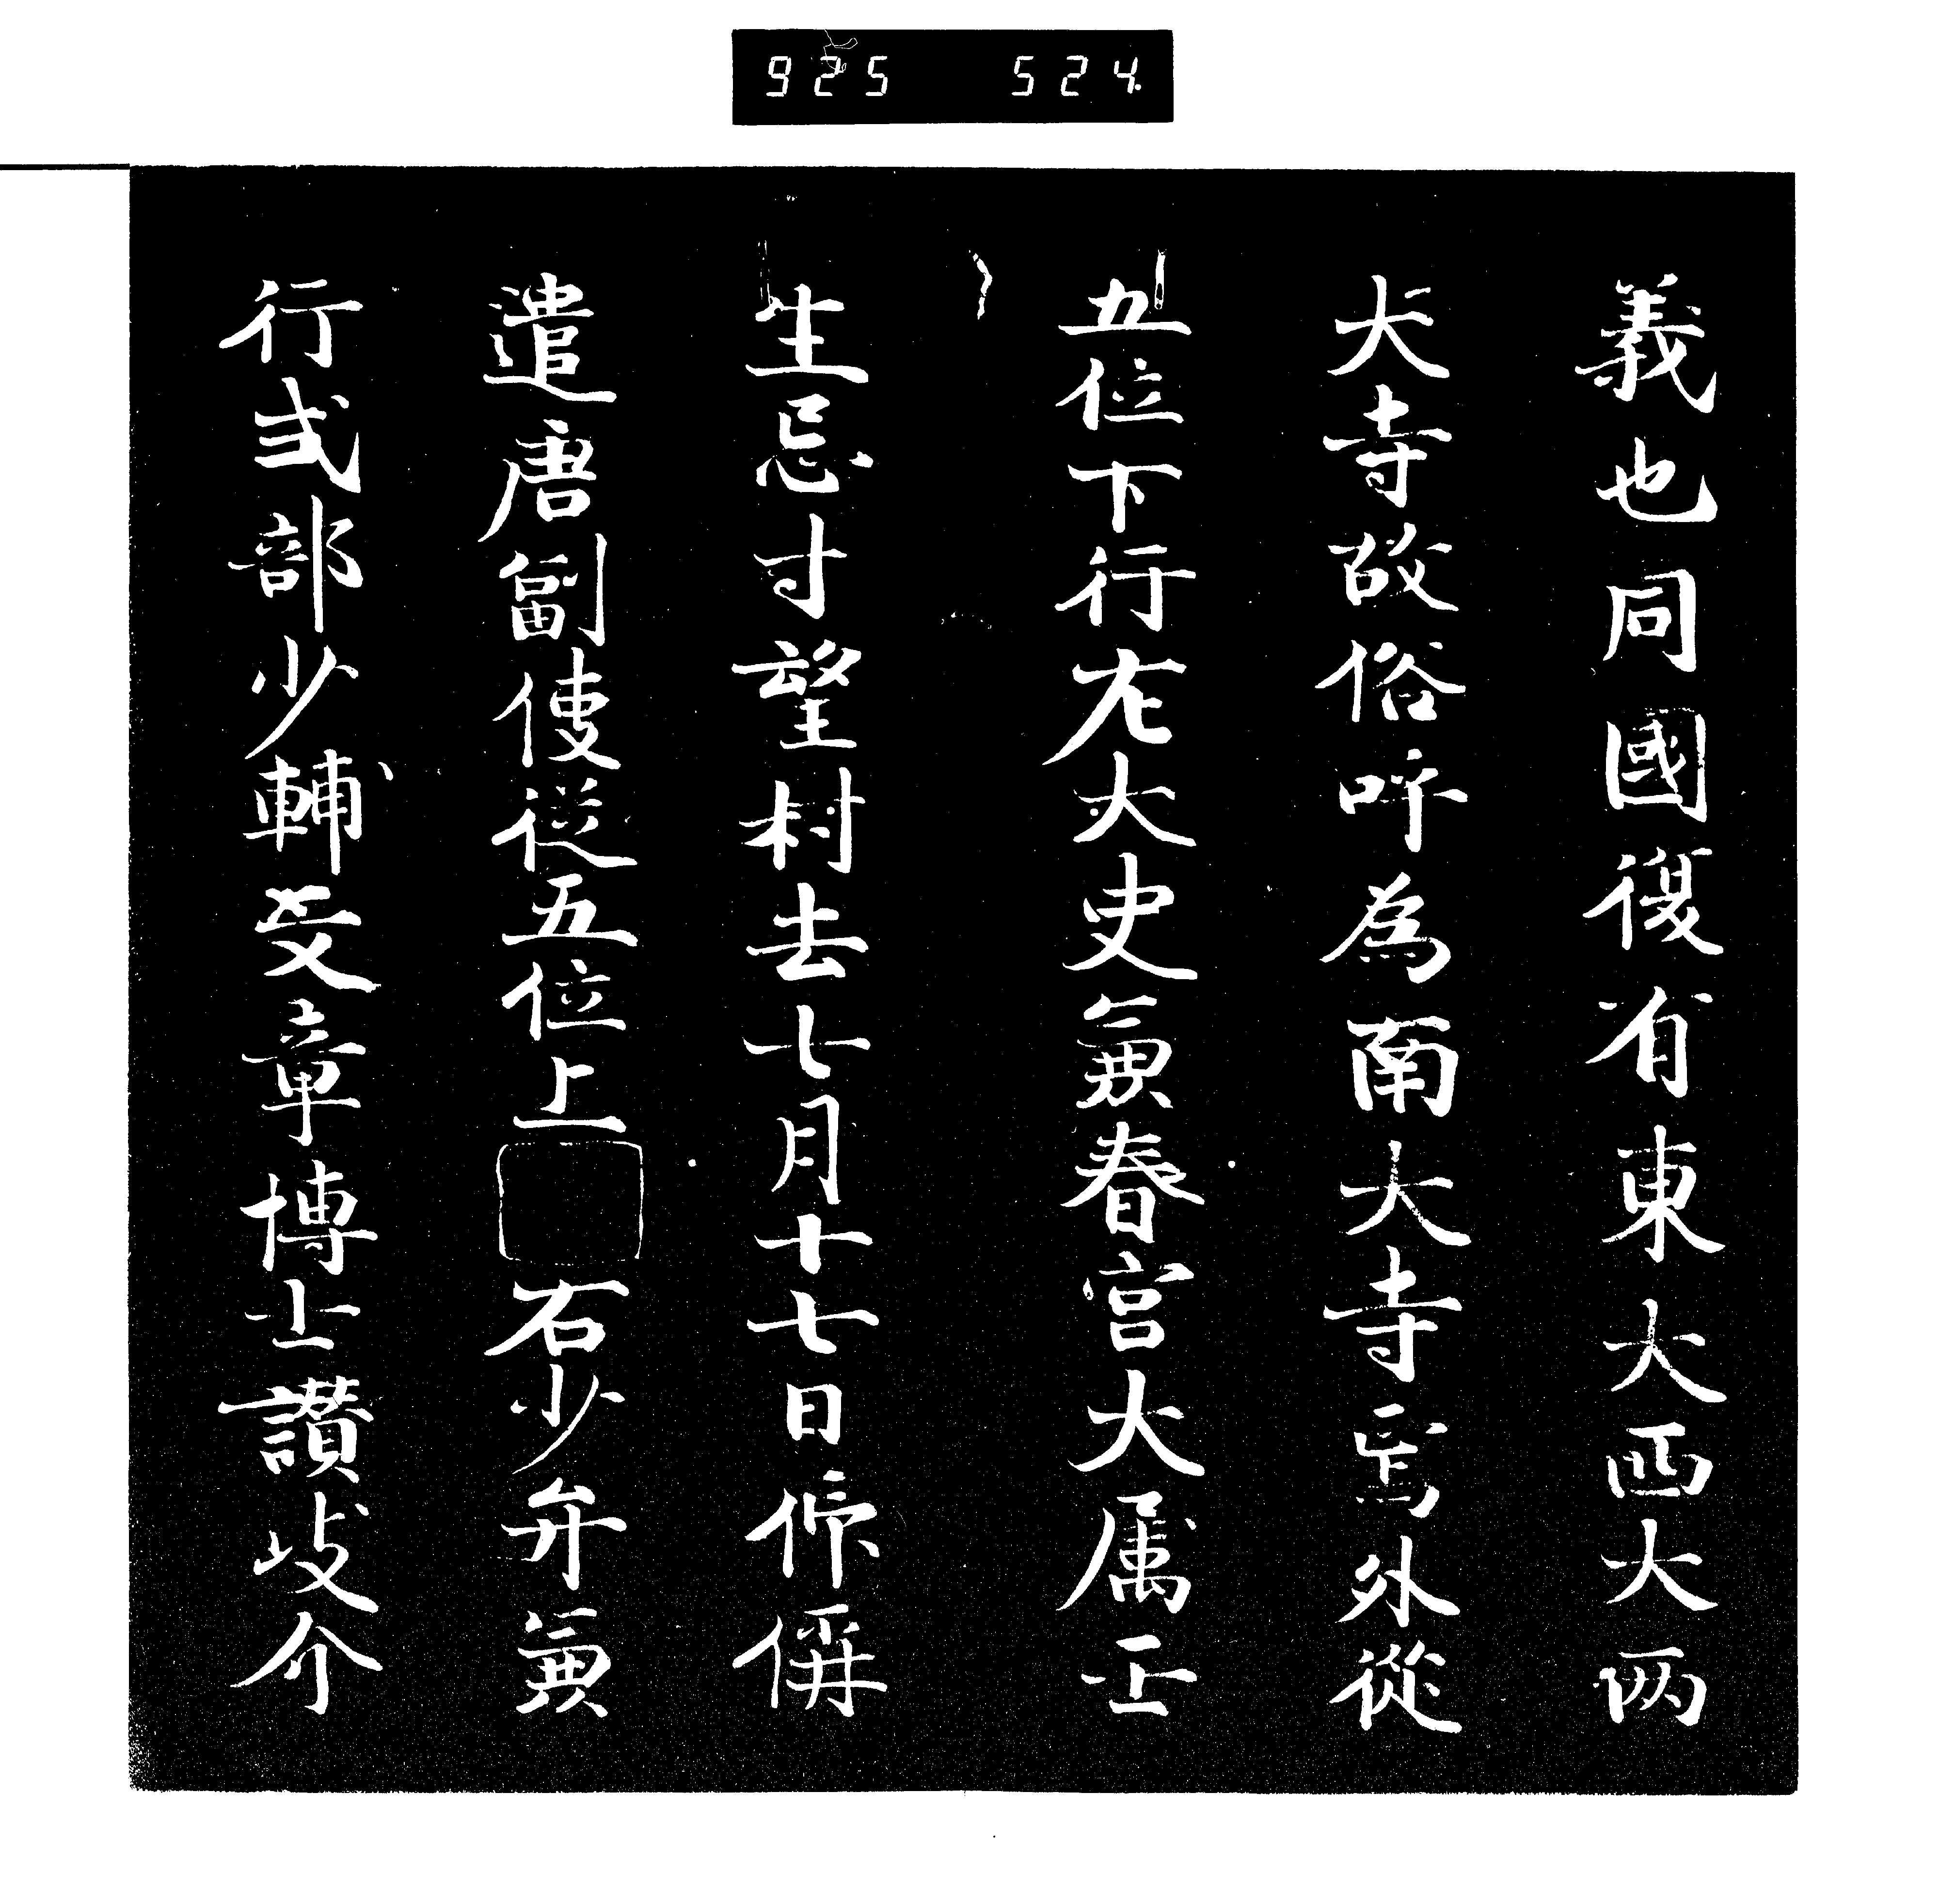 925 524.
義也同國復有東大西大两
大寺故俗呼為南大寺焉外從
五位下行左大史兼春宮大属壬
生忌寸望村去七月十七日作偁
遣唐副使從五位上 右少弁兼
行式部少輔文章博士讃岐介